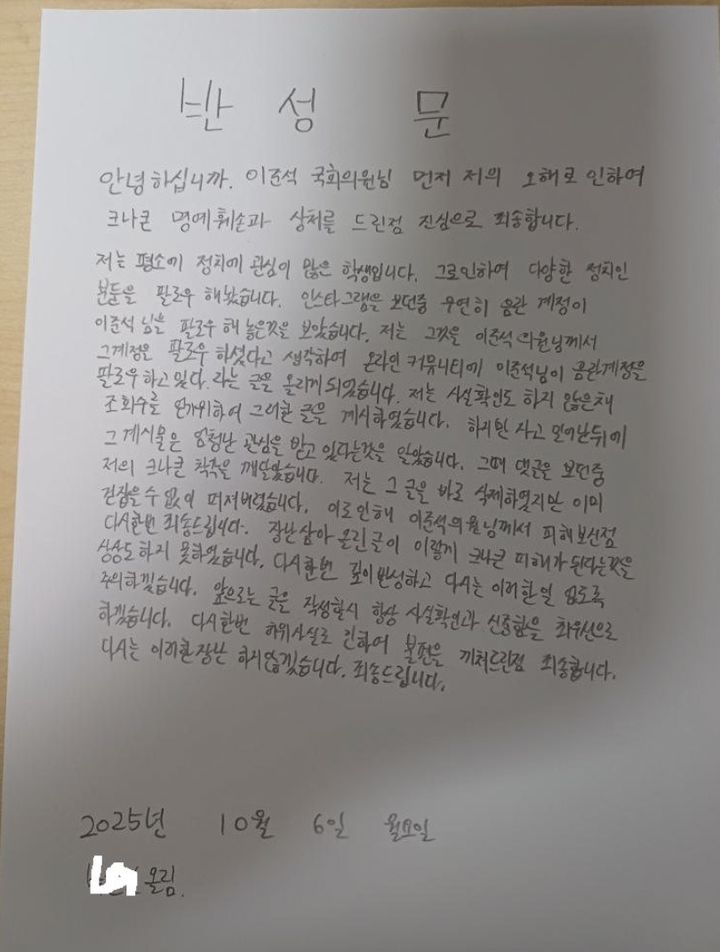 반 성 문
안녕하십니까. 이준석 국회의원님 먼저 저의 오해로 인하여
크나큰 명예훼손과 상처를 드린점 진심으로 죄송합니다.
저는 평소에 정치에 관심이 많은 학생입니다. 그로인하여 다양한 정치인
분들을 팔로우 해놨습니다. 인스타그램을 보던중 우연히 음란 계정이
이준석 님을 팔로우 해 놓은것을 보았습니다. 저는 그것을 이준석 의원님께서
그계정을 팔로우 하셨다고 생각하여 온라인 커뮤니티에 이준석님이 음란계정을
팔로우하고 있다. 라는 글을 올리게 되었습니다. 저는 사실확인도 하지 않은채
조회수를 위하여 그러한 글을 게시하였습니다. 하지만 사고 일어난뒤에
그 게시물은 엄청난 관심을 받고 있다는것을 알았습니다. 그때 댓글을 보던중
저의 크나큰 착각을 깨달았습니다. 저는 그 글을 바로 삭제하였지만 이미
걷잡을 수 없이 퍼져버렸습니다. 이로 인해 이준석의원님께서 피해보신점
다시한번 죄송드립니다. 장난삼아 올린글이 이렇게 크나큰 피해가 된다는것을
상상도 하지 못하였습니다. 다시한번 깊이 반성하고 다시는 이러한일 없도록
주의하겠습니다. 앞으로는 글을 작성할시 항상 사실확인과 신중함을 최우선으로
하겠습니다. 다시한번 허위사실로 인하여 불편을 끼쳐드린점 죄송합니다.
다시는 이러한장난 하지않겠습니다. 죄송드립니다.
2025년 10월 6일 월요일
올림.